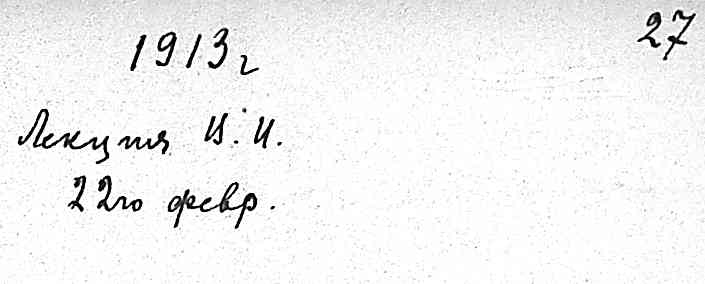 27
1913 г
Лекция И. И.
22го февр.